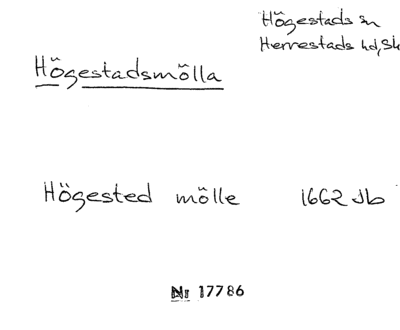 Högestads sn
Herrestads hd, Sk
Högestadsmölla
Högested mölle 1662 Jb
Nr 17786